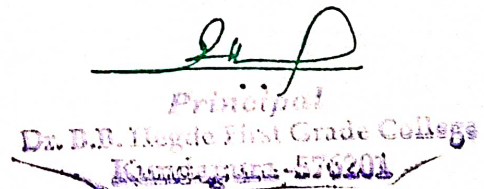 Principal
Dr. B.B. Hegde First Grade College
Kundapura - 576201